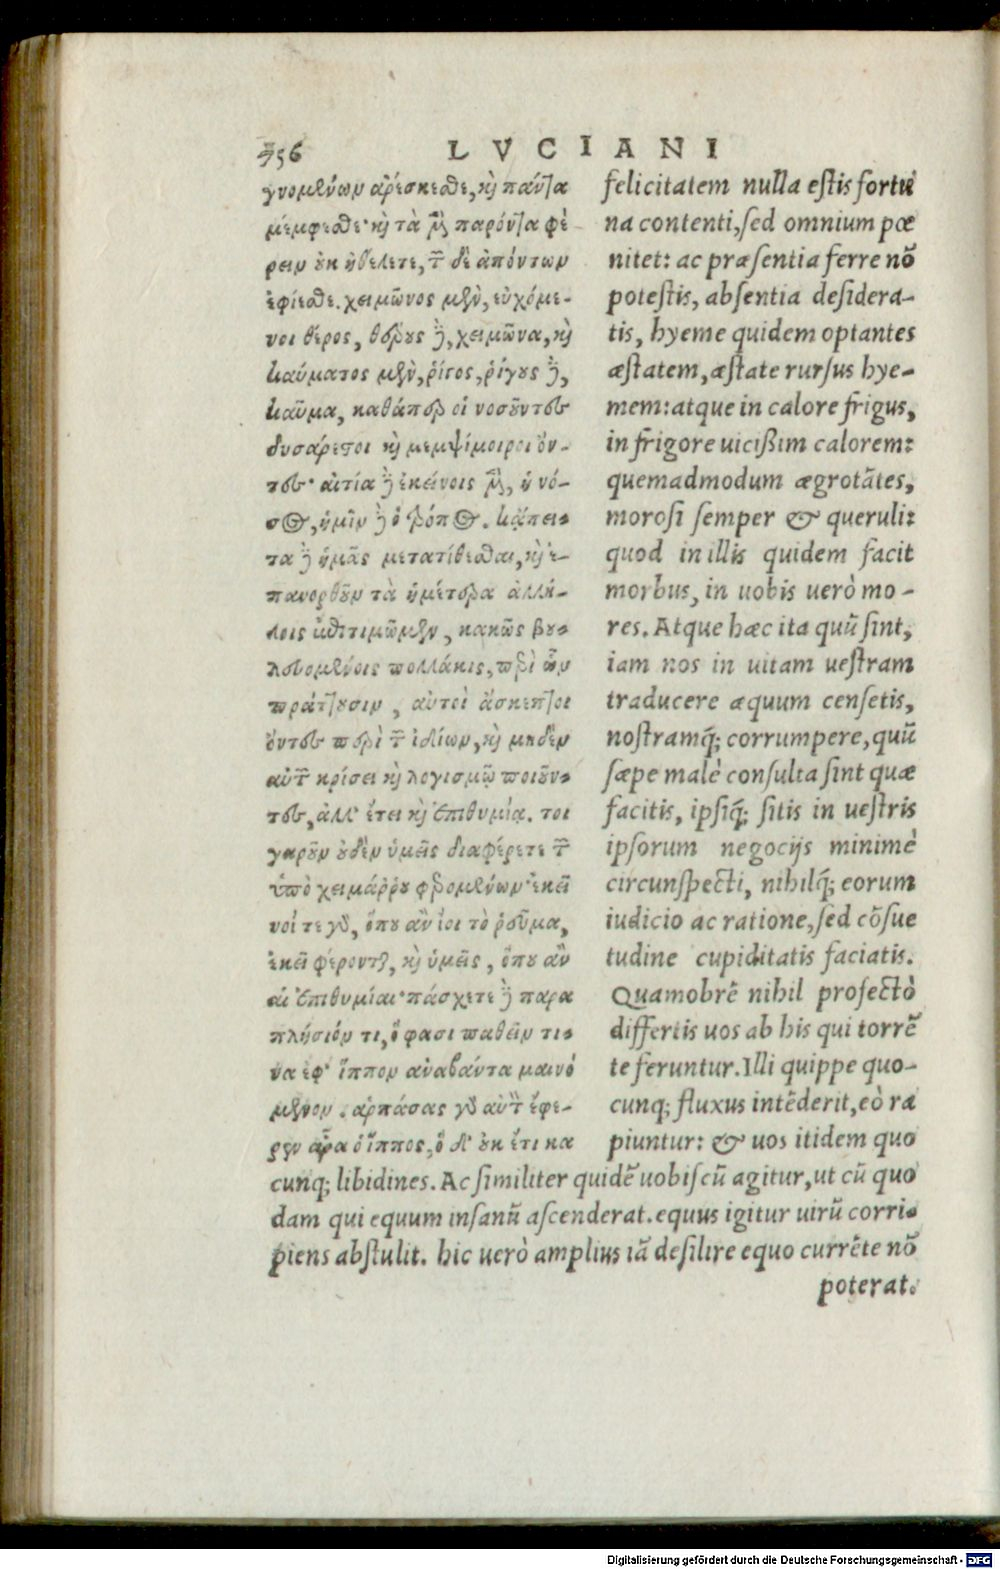 756 LVCIANI
γνομένων ἀρέσκεσθε, καὶ πάντα
μέμφεσθε· καὶ τὰ μὲν παρόντα φέ
ρειν οὐκ ἠθέλετε, τῶν δὲ ἀπόντων
ἐφίεσθε. χειμῶνος μὲν, εὐχόμε-
νοι θέρος, θέρους δὲ, χειμῶνα, καὶ
καύματος μὲν, ῥίγος, ῥίγους δὲ,
καῦμα, καθάπερ οἱ νοσοῦντες
δυσάρεστοι καὶ μεμψίμοιροι ὄν-
τες· αἰτία δὲ ἐκείνοις μὲν, ἡ νό-
σος, ὑμῖν δὲ ὁ τρόπος. κἄπει-
τα δὲ ἡμᾶς μετατίθεσθαι, καὶ ἐ-
πανορθοῦν τὰ ἡμέτερα ἀλλή-
λοις ἐπιτιμῶμεν, κακῶς βου-
λευομένοις πολλάκις, περὶ ὧν
πράττουσιν, αὐτοὶ ἄσκεπτοι
ὄντες περὶ τῶν ἰδίων, καὶ μηδὲν
αὐτῶν κρίσει καὶ λογισμῷ ποιοῦν-
τες, ἀλλ' ἔτει καὶ ἐπιθυμίᾳ. τοι
γαροῦν οὐδὲν ὑμεῖς διαφέρετε τῶν
ὑπὸ χειμάρρου φερομένων· ἐκεῖ
νοί τε γὰρ, ὅπου ἂν ἴοι τὸ ῥεῦμα,
ἐκεῖ φέρονται, καὶ ὑμεῖς, ὅπου ἂν
αἱ ἐπιθυμίαι· πάσχετε δὲ παρα
πλήσιόν τι, ὅ φασι παθεῖν τι-
να ἐφ' ἵππον ἀναβάντα μαινό
μενον. ἁρπάσας γὰρ αὐτὸν ἔφε-
ρεν ἄρα ὁ ἵππος, ὁ δ' οὐκ ἔτι κα
felicitatem nulla estis fortu
na contenti, sed omnium pœ
nitet: ac præsentia ferre nō
potestis, absentia desidera-
tis, hyeme quidem optantes
æstatem, æstate rursus hye-
mem: atque in calore frigus,
in frigore uicißim calorem:
quemadmodum ægrotātes,
morosi semper & queruli:
quod in illis quidem facit
morbus, in uobis uerò mo-
res. Atque hæc ita quū sint,
iam nos in uitam uestram
traducere æquum censetis,
nostramq; corrumpere, quū
sæpe malè consulta sint quæ
facitis, ipsiq; sitis in uestris
ipsorum negocijs minimè
circunspecti, nihilq; eorum
iudicio ac ratione, sed cōsue
tudine cupiditatis faciatis.
Quamobrē nihil profectò
differtis uos ab his qui torrē
te feruntur. Illi quippe quo-
cunq; fluxus intēderit, eò ra
piuntur: & uos itidem quo
cunq; libidines. Ac similiter quidē uobiscū agitur, ut cū quo
dam qui equum insanū ascenderat. equus igitur uirū corri-
piens abstulit. hic uerò amplius iā desilire equo currēte nō
poterat.
Digitalisierung gefördert durch die Deutsche Forschungsgemeinschaft - DFG